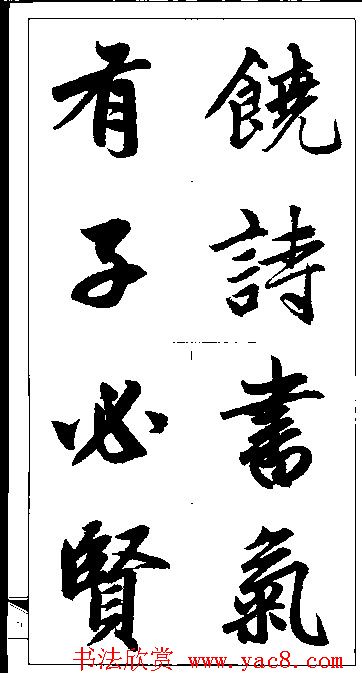 饒詩書氣
有子必賢
书法欣赏 www.yac8.com